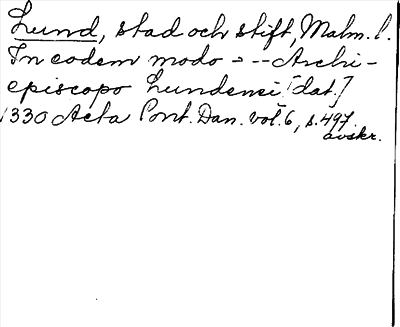 Lund, stad och stift, Malm. l.
In eodem modo - -- Archi-
episcopo Lundensi [dat.]
1330 Acta Pont. Dan. vol. 6, s. 497.
avskr.